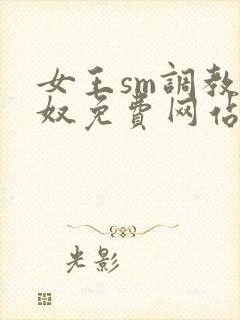 女王sm調教
奴免費网佔
光影